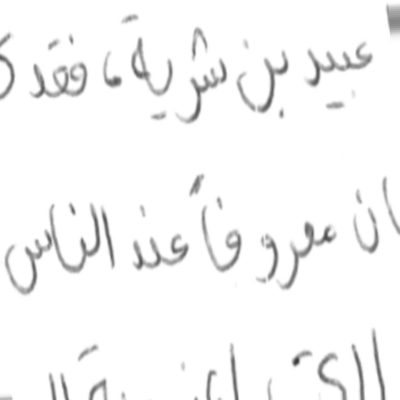 عبيد بن شرية، فقد ك
ان معروفاً عند الناس